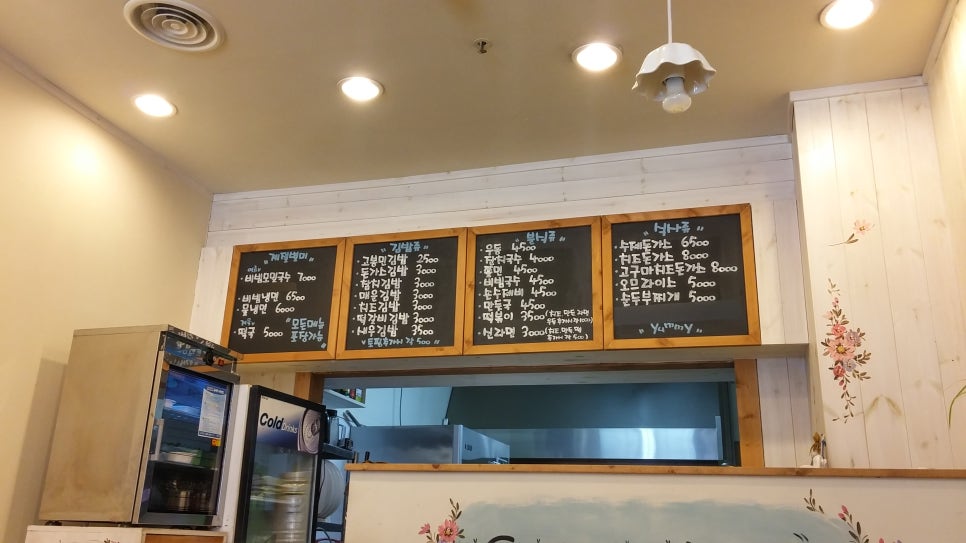 "계절별미"
여름
·비빔모밀국수 7000
·비빔냉면 6500
·물냉면 6000
겨울
·떡국 5000
모든메뉴
포장가능
"김밥류"
·고봉민김밥 2500
·돈가스김밥 3000
·참치김밥 3000
·매운김밥 3000
·치즈김밥 3000
·떡갈비김밥 3000
·새우김밥 3500
"토핑추가시 각 500"
"분식류"
·우동 4500
·잔치국수 4000
·쫄면 4500
·비빔국수 4500
·손수제비 4500
·만둣국 4500
·떡볶이 3500
·신라면 3000 (치즈. 만두. 떡
추가시 각 500)
"식사류"
·수제돈가스 6500
·치즈돈가스 8000
·고구마치즈돈가스 8000
·오므라이스 5000
·순두부찌개 5000
"Yummy"
Cold Drinks